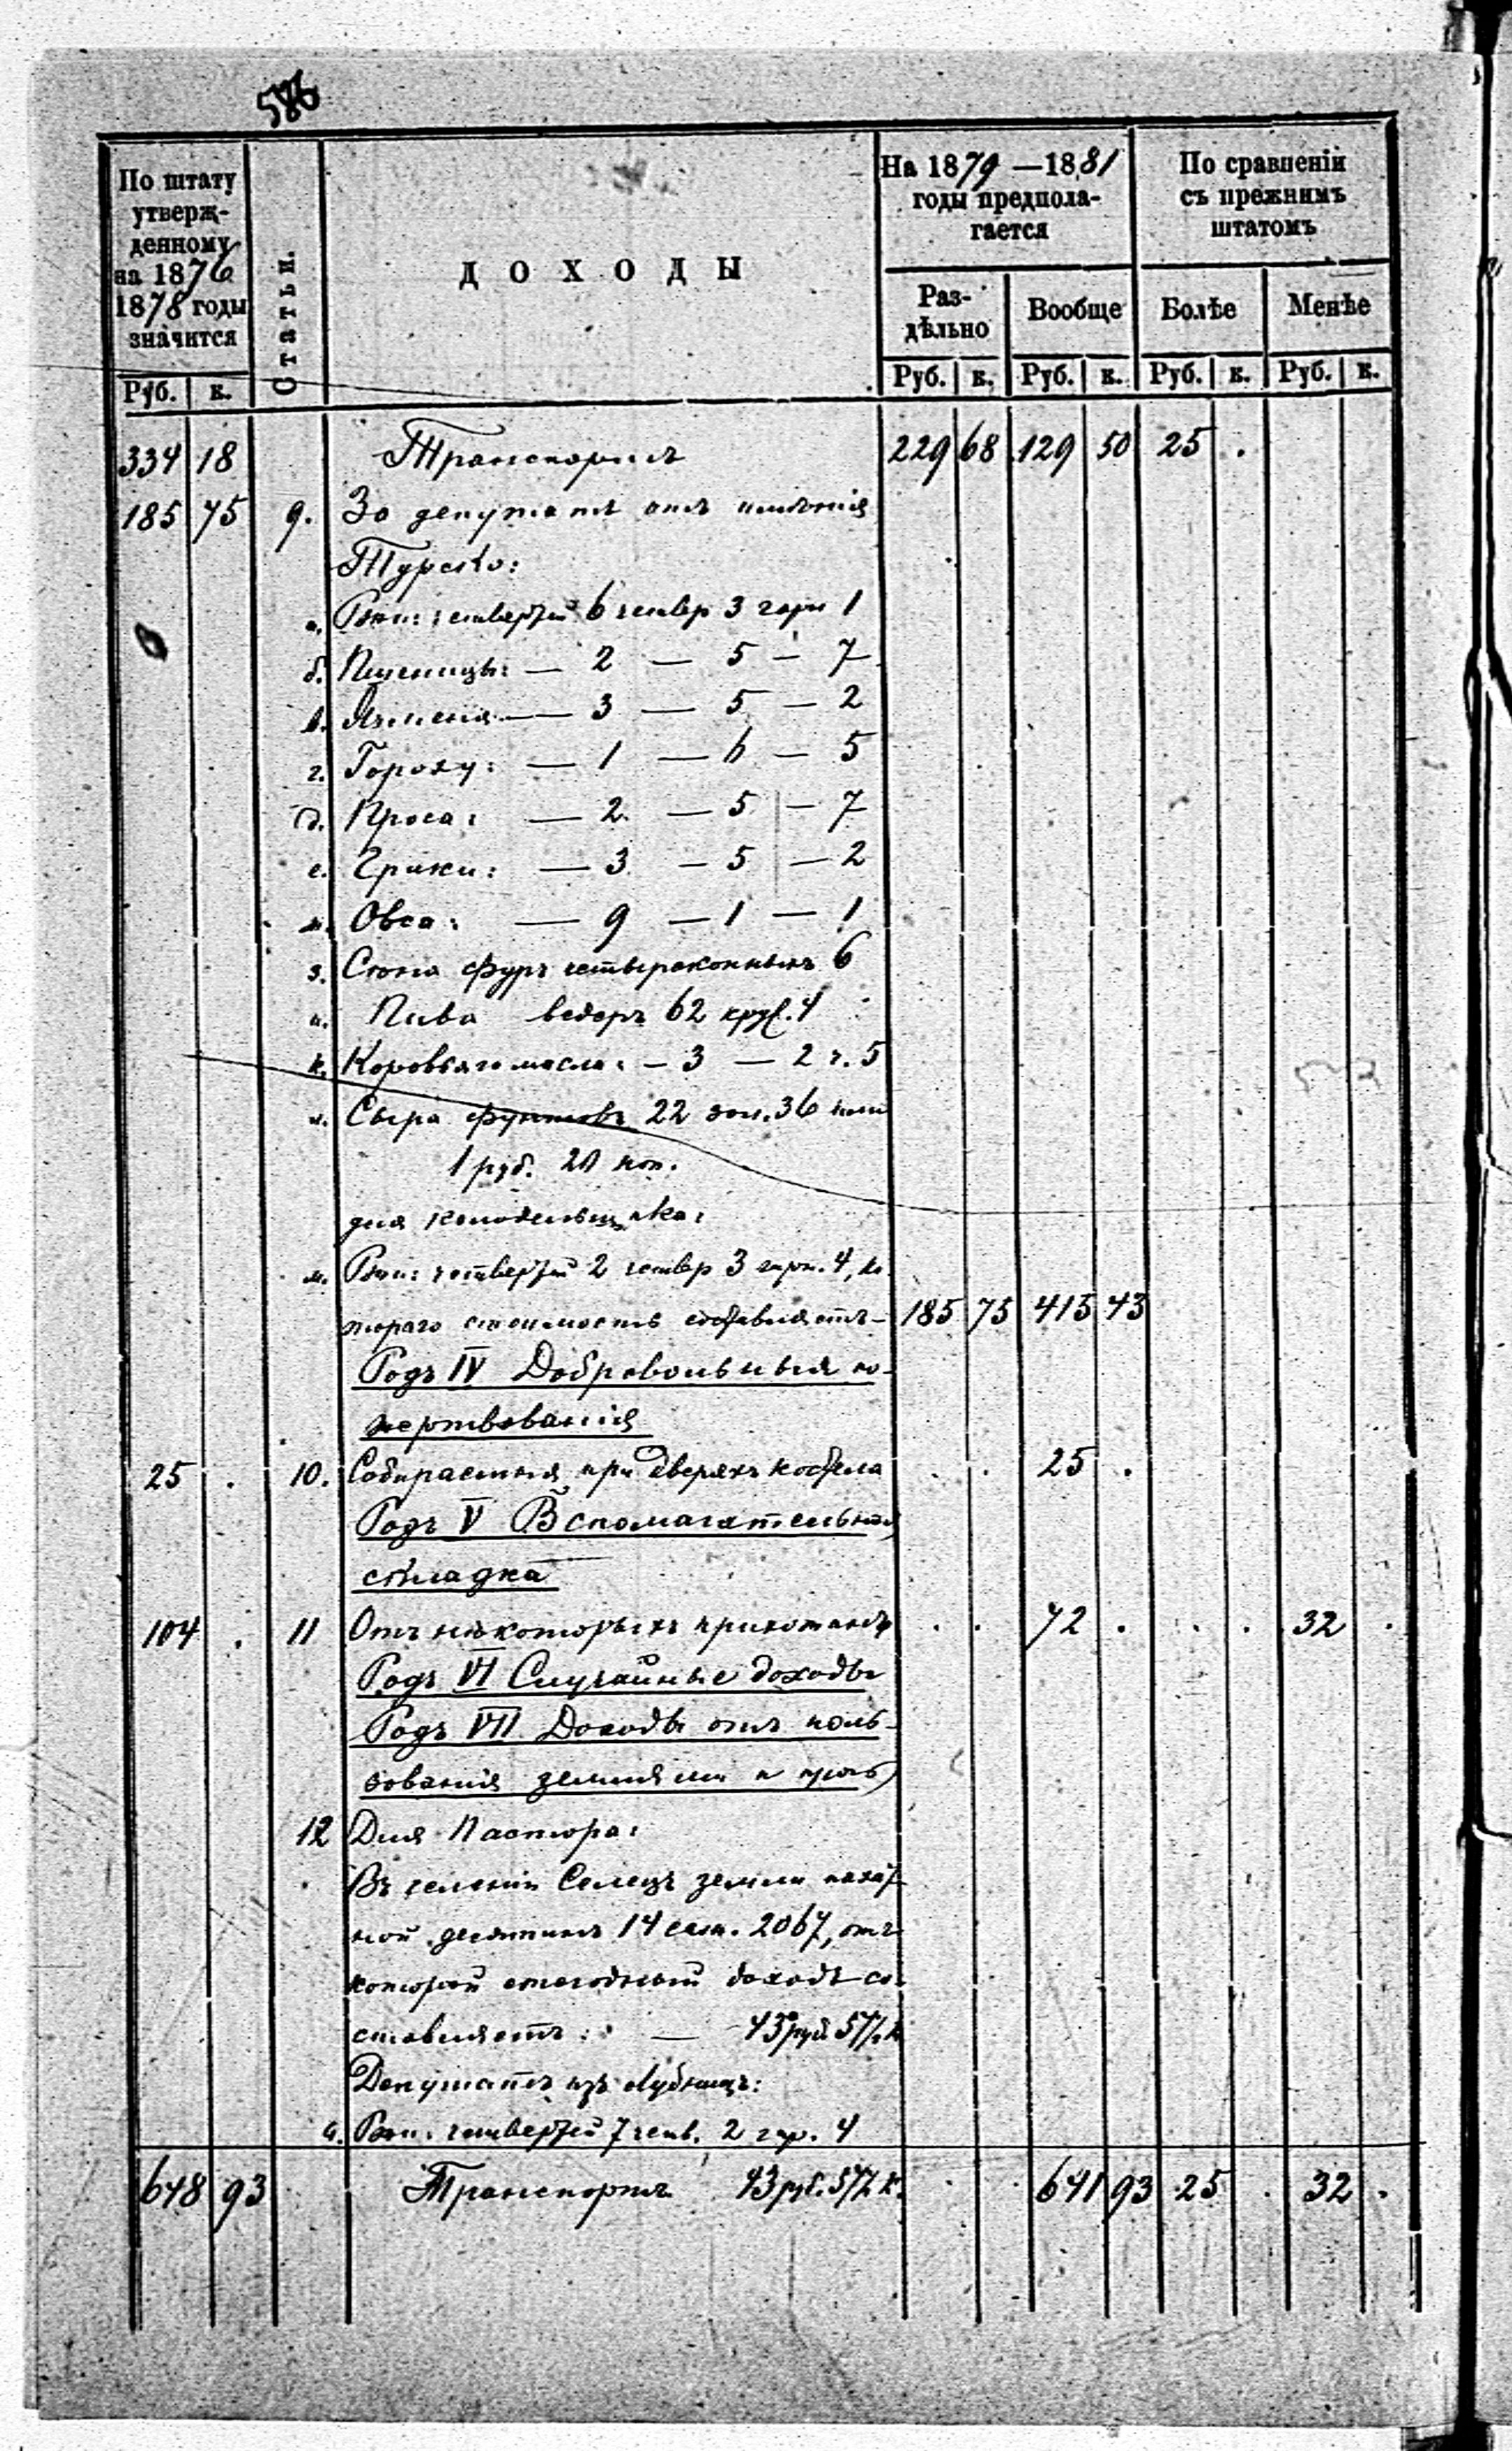 586
По штату утверж-денному на 1876 1878 годы значится
Статьи.
ДОХОДЫ
На 1879 —1881 годы предпола-гается
По сравненіи съ прежнимъ штатомъ
Раз-дѣльно
Вообще
Болѣе
Менѣе
Руб. к. Руб. к. Руб. к. Руб. к. Руб. к.
334 18 Транспортъ 229 68 129 50 25 .
185 75 9. За депутатъ отъ имѣнія
Турско:
а. Ржи: четвертей 6 четвер 3 гарн 1
б. Пшеницы: — 2 — 5 — 7
в. Ячменя — — 3 — 5 — 2
г. Гороху: — 1 — 6 — 5
д. Проса: — 2 — 5 — 7
е. Гречки: — 3 — 5 — 2
ж. Овса: — 9 — 1 — 1
з. Сѣна фуръ четыреконныхъ 6
и. Пива ведеръ 62 круж. 4
к. Коровьяго масла: — 3 — 2 ч. 5
л. Сыра фунтовъ 22 зол. 36 или
1 руб. 20 коп.
для колодельщика:
м. Ржи: четвертей 2 четвер 3 гарн. 4, ко
тораго стоимость составляетъ — 185 75 415 43
Родъ IV Добровольныя по-
жертвованія
25 . 10. Собираемыя при дверяхъ костела . . 25 .
Родъ V Вспомагательная
складка
104 . 11 Отъ нѣкоторыхъ прихожанъ . . 72 . . . 32 .
Родъ VI Случайные доходы
Родъ VII Доходы отъ поль-
зованія землями и проч
12 Для Пастора:
Въ селеніи Селецъ земли пахат-
ной десятинъ 14 саж. 2067, отъ
которой ежегодный доходъ со-
ставляетъ: — 43 руб 57½ к
Депутатъ изъ Лубницъ:
а. Ржи: четвертей 7 четв. 2 гар. 4
648 93 Транспортъ 43 руб. 57½ к. . . 641 93 25 . 32 .